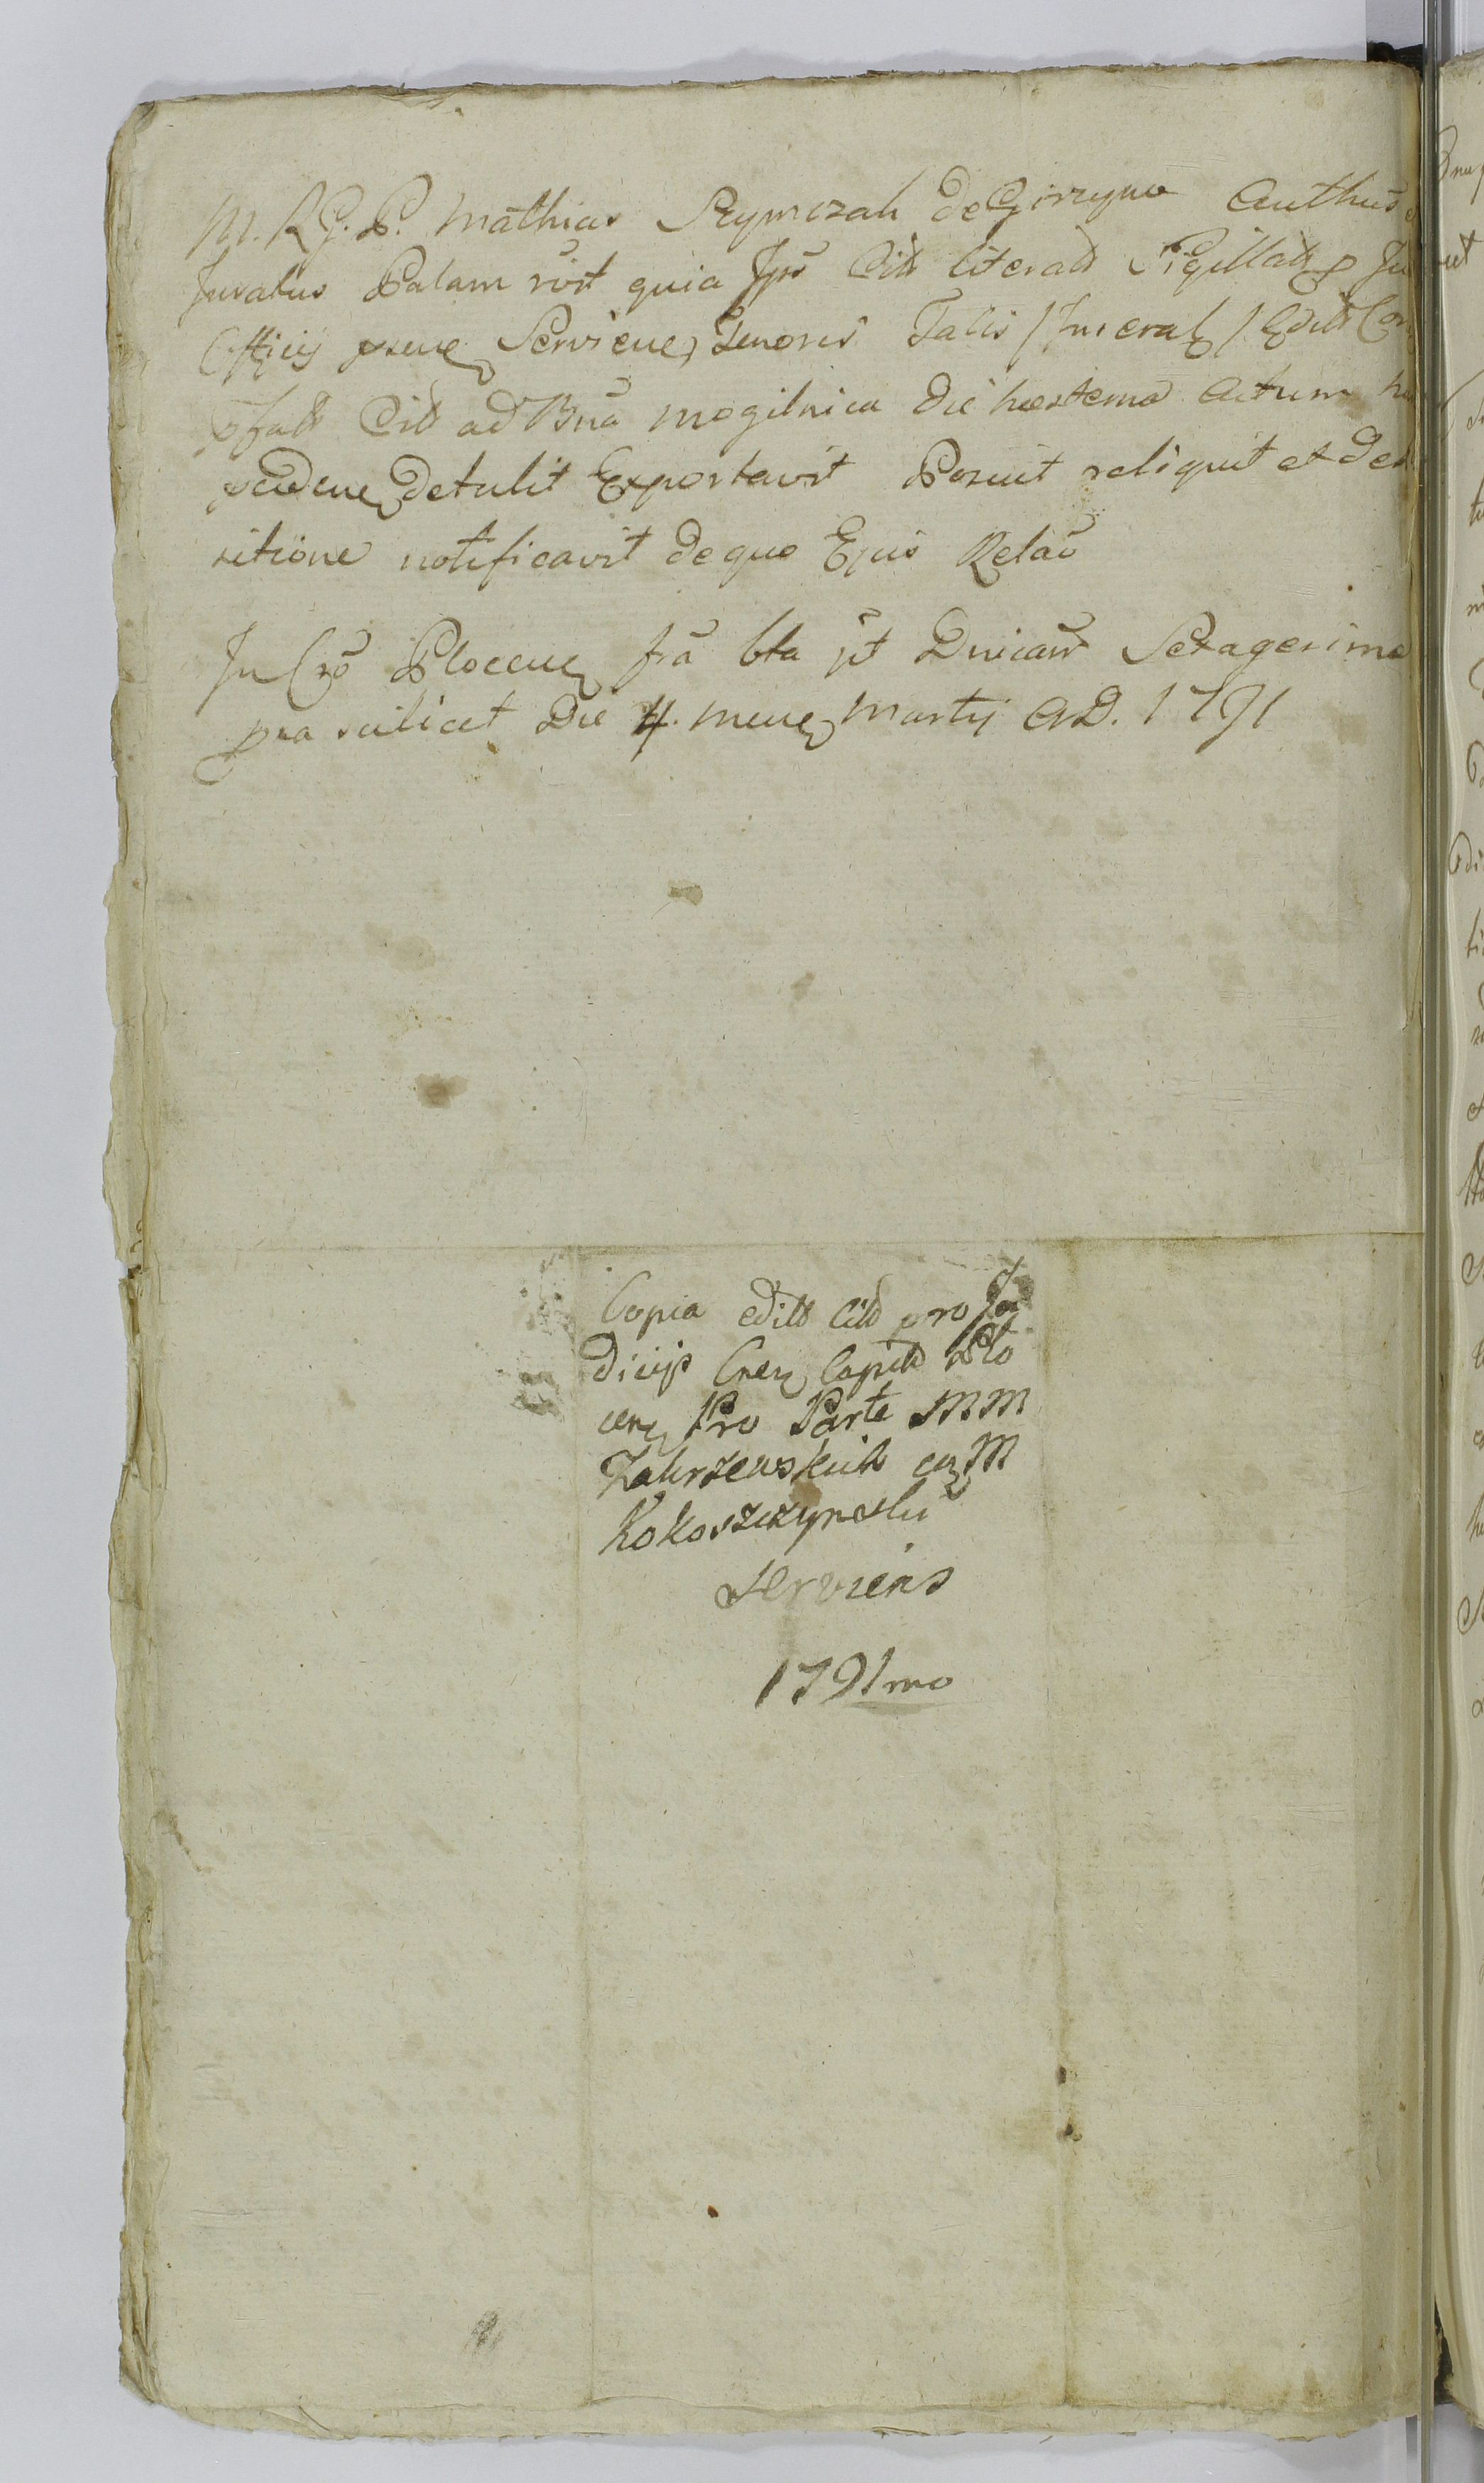 M. R. G. P. Mathias Szymczak de Girzyno Authus
Juratus Palam rūt quia Jps Citt literalt Sigillatt p Ju
Officij psene Serviene Tenoris Talis / Inseral / Editt Con
Pfatt Citt ad Bnā Mogilnica die hesterna Actum
pcedene detulit Exportavit Posuit reliquit et de
sitione notificavit de quo Ejus Relāo
In Cro Plocene fra 6ta pt Dnicam Sexagesima
pxa scilicet Die 4. mene Martij A.D. 1791
Copia editt Citt pro Ju
dicijs Cnen Capitt Plo
cen Pro Parte MM
Zakrzewskich cu M
Kokoszczynski
serviens
1791mo